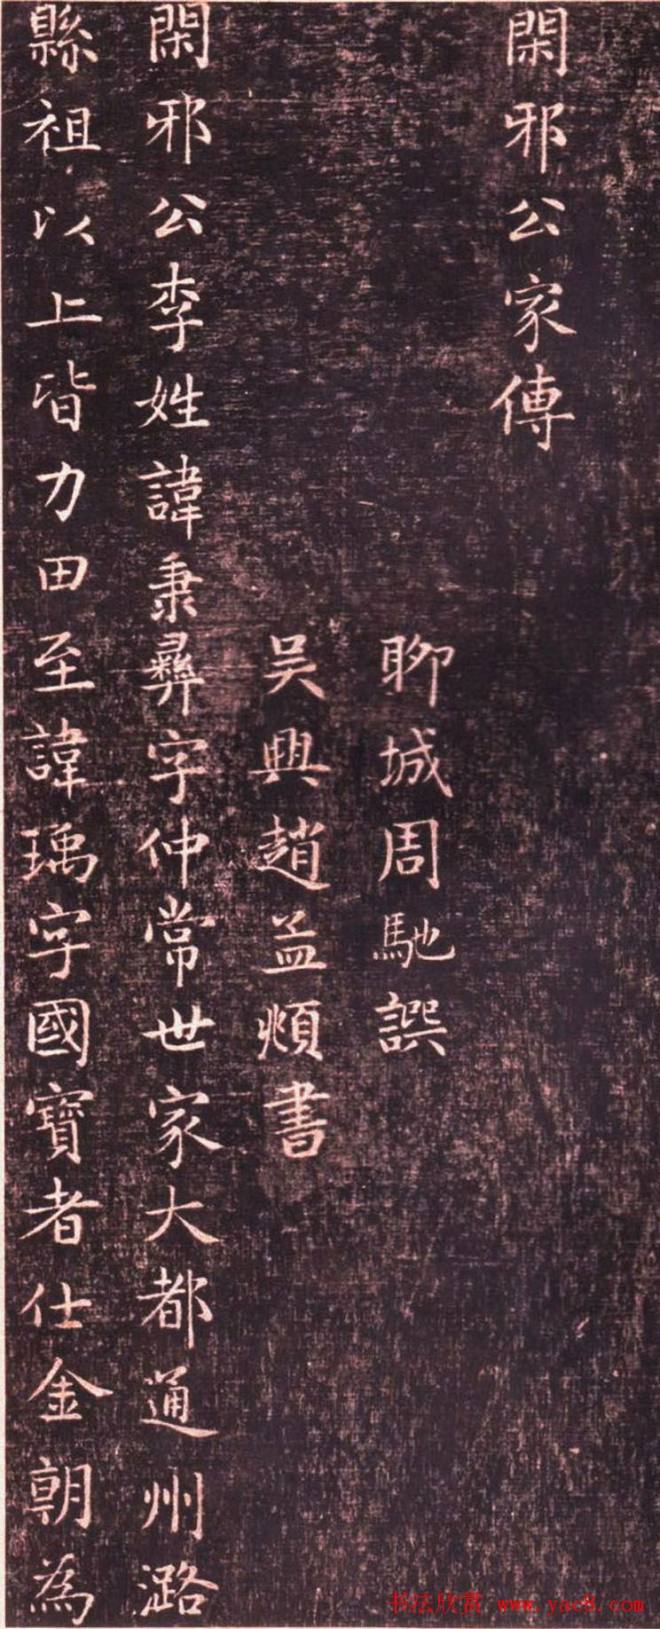 閑邪公家傳
聊城周馳譔
吳興趙孟頫書
閑邪公李姓諱秉彝字仲常世家大都通州潞
縣祖以上皆力田至諱瑀字國寶者仕金朝為
书法欣赏 www.yac8.com